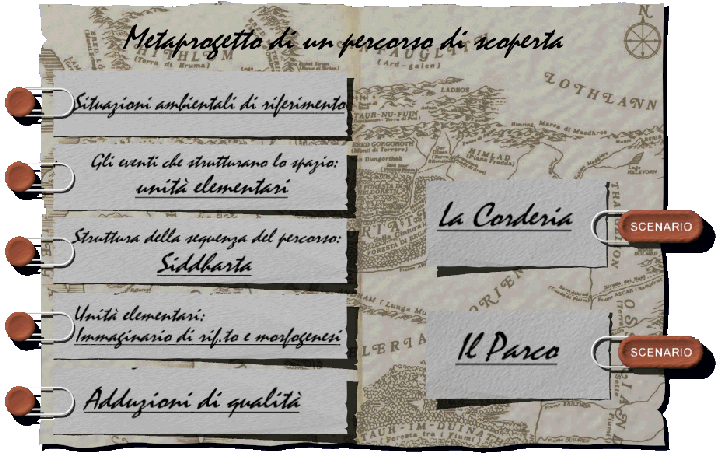 Metaprogetto di un percorso di scoperta
Situazioni ambientali di riferimento
Gli eventi che strutturano lo spazio:
unità elementari
Struttura della sequenza del percorso:
Siddharta
Unità elementari:
Immaginario di rif.to e morfogenesi
Adduzioni di qualità
La Corderia
SCENARIO
Il Parco
SCENARIO
N
LOTHLANN
LADROS
TAUR-NU-FUIN
HIMLAD
TAUR-IM-DUINATH